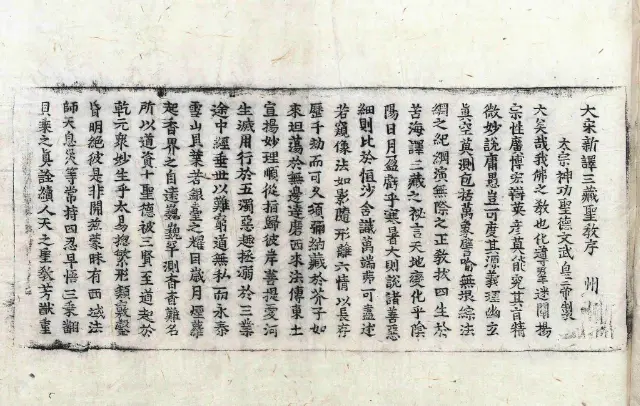 大宋新譯三藏聖教序　州
太宗神功聖德文武皇帝製
大矣哉我佛之教也化導羣迷闡揚
宗性廣博宏辯英彥莫能究其旨精
微妙說庸愚豈可度其源義理幽玄
真空莫測包括萬象譬喻無垠綜法
網之紀綱演無際之正教拔四生於
苦海譯三藏之秘言天地變化乎陰
陽日月盈虧乎寒暑大則說諸善惡
細則比於恒沙含識萬端弗可盡述
若窺像法如影隨形離六情以長存
歷千劫而可久須彌納藏於芥子如
來坦蕩於無邊達磨西來法傳東土
宣揚妙理順從指歸彼岸菩提愛河
生滅用行於五濁惡趣拯溺於三業
途中經垂世以難窮道無私而永泰
雪山貝葉若銀臺之耀目歲月煙蘿
起香界之自遠巍巍罕測杳杳難名
所以道資十聖德被三賢至道起於
乾元衆妙生乎太易揔繁形類鑿
旨明絕彼是非開蒙昧有西域法
師天息災等常持四忍早悟三乘翻
貝葉之真詮續人天之聖教芳猷重